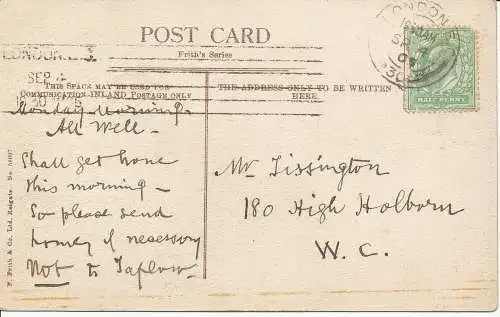 POST CARD
Frith's Series
THIS SPACE MAY BE USED FOR
COMMUNICATION INLAND POSTAGE ONLY
THE ADDRESS ONLY TO BE WRITTEN
HERE
LONDON
SEP
HALF PENNY
Monday Morning.
All Well.
Shall get home
this morning -
So please send
home if necessary
Not to Taplow.
Mr Tissington
180 High Holborn
W. C.
F. Frith & Co. Ltd. Reigate.